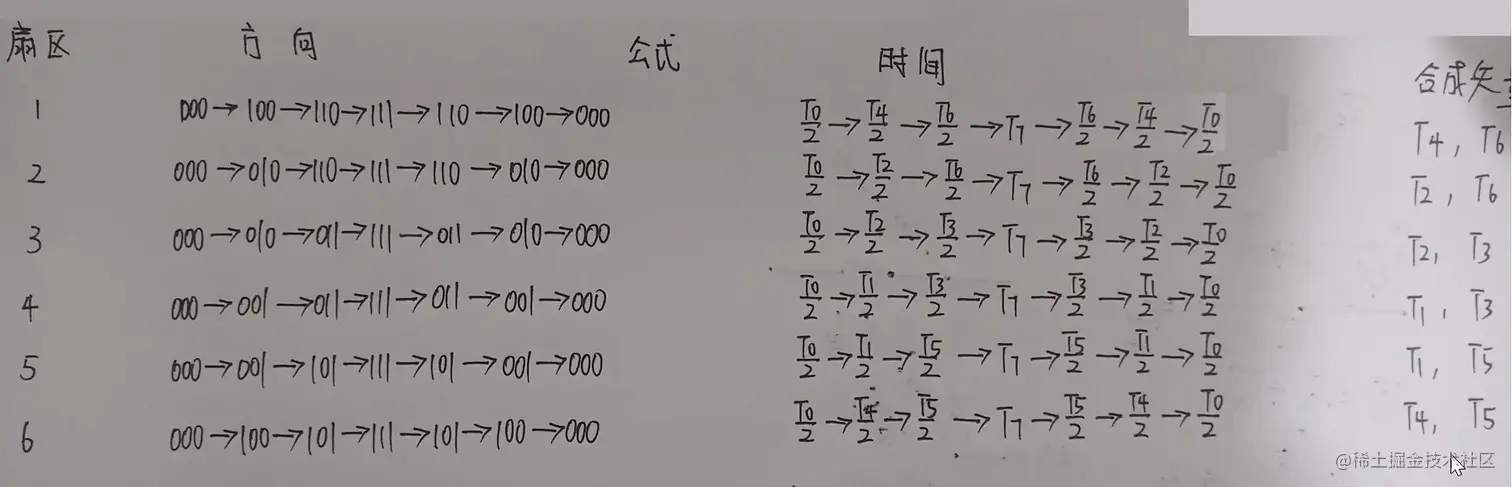 扇区 方向 公式 时间 合成矢
1 000→100→110→111→110→100→000 T0/2→T4/2→T6/2→T7→T6/2→T4/2→T0/2 T4, T6
2 000→010→110→111→110→010→000 T0/2→T2/2→T6/2→T7→T6/2→T2/2→T0/2 T2, T6
3 000→010→011→111→011→010→000 T0/2→T2/2→T3/2→T7→T3/2→T2/2→T0/2 T2, T3
4 000→001→011→111→011→001→000 T0/2→T1/2→T3/2→T7→T3/2→T1/2→T0/2 T1, T3
5 000→001→101→111→101→001→000 T0/2→T1/2→T5/2→T7→T5/2→T1/2→T0/2 T1, T5
6 000→100→101→111→101→100→000 T0/2→T4/2→T5/2→T7→T5/2→T4/2→T0/2 T4, T5
@稀土掘金技术社区